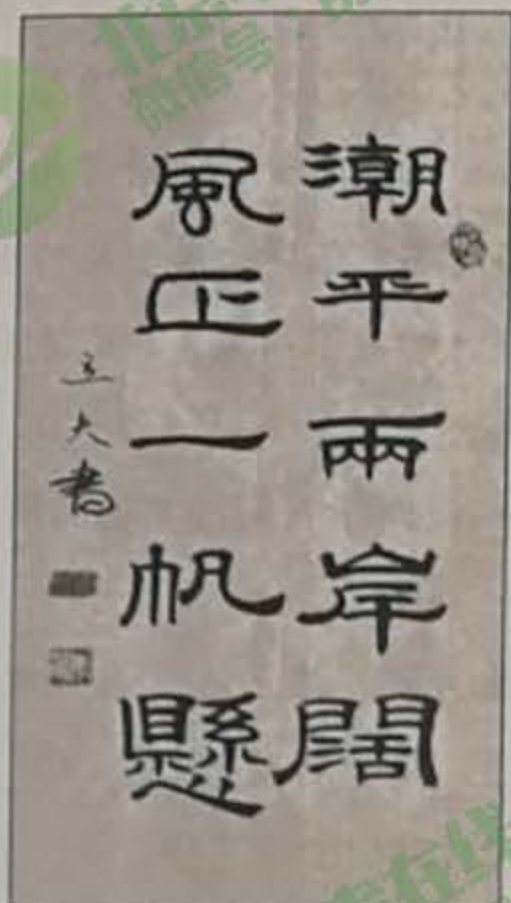 潮平兩岸闊
風正一帆懸
立大書